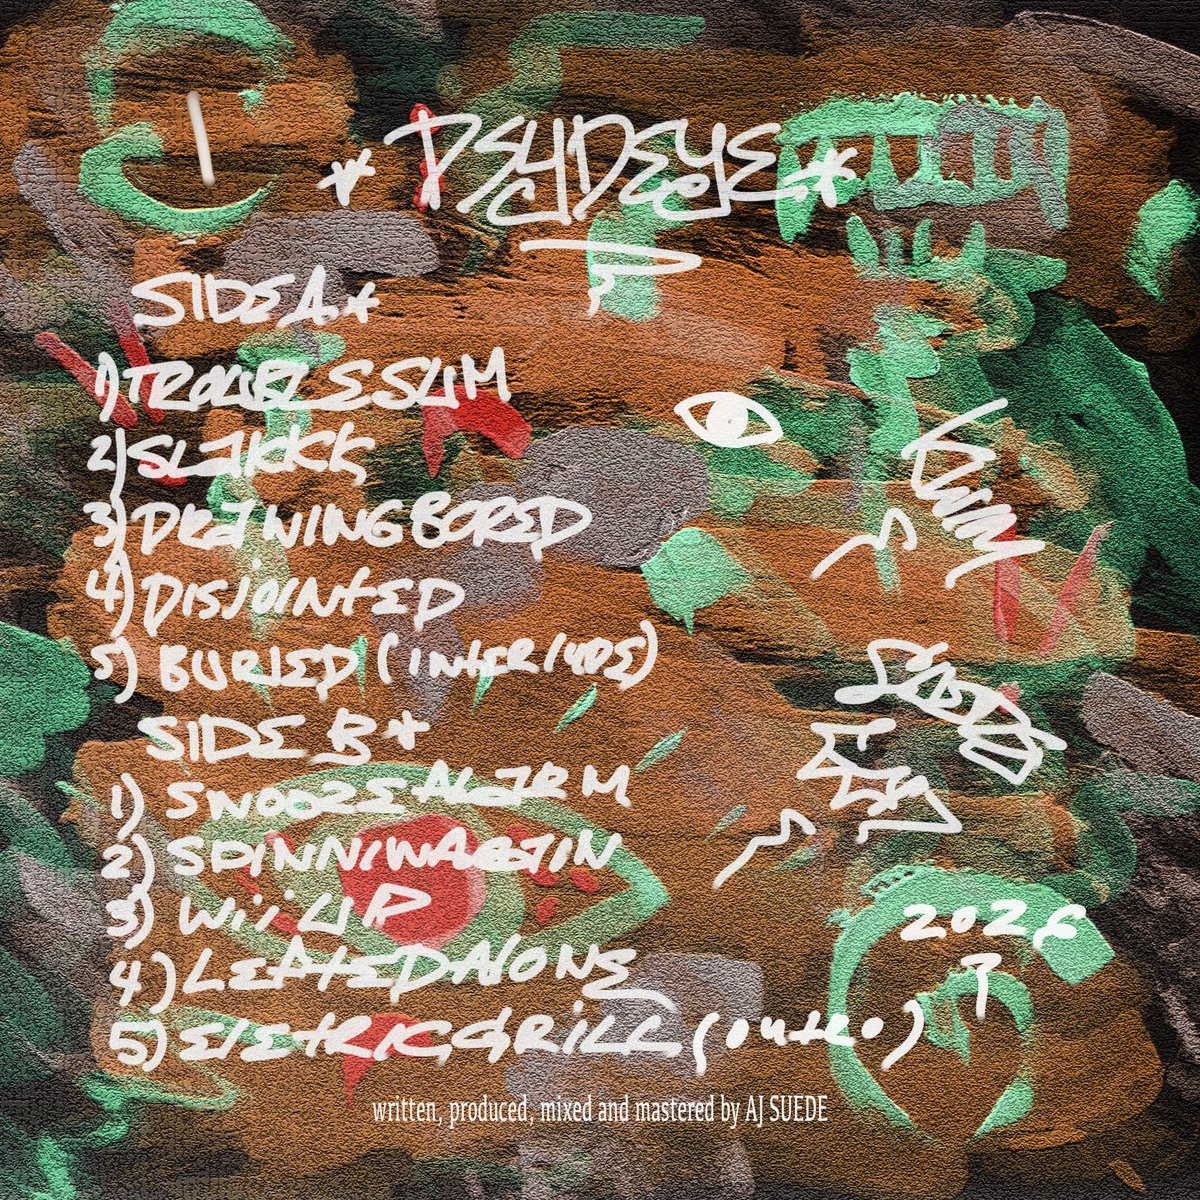 * PSYDEYE *
SIDE A *
1) TROUBLESSUM
2) SLAKKK
3) DRAWING BORED
4) DISJOINTED
5) BURIED (INTERLUDE)
SIDE B *
1) SNOOZE ALARM
2) SPINNIWAEGIN
3) Wii UP
4) LEFTEDALONE
5) ELETRIC GRILL (OUTRO)
2026
written, produced, mixed and mastered by AJ SUEDE